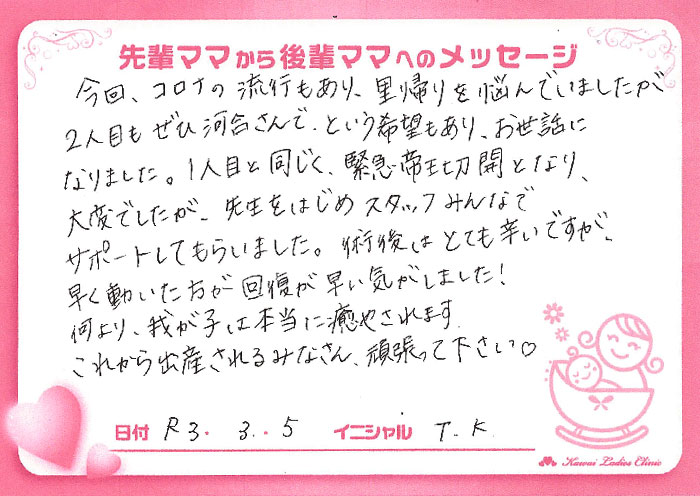 先輩ママから後輩ママへのメッセージ
今回、コロナの流行もあり、里帰りを悩んでいましたが
2人目もぜひ河合さんで、という希望もあり、お世話に
なりました。1人目と同じく、緊急帝王切開となり、
大変でしたが、先生をはじめスタッフみんなで
サポートしてもらいました。術後はとても辛いですが、
早く動いた方が回復が早い気がしました!
何より、我が子は本当に癒やされます
これから出産されるみなさん、頑張って下さい♡
日付 R3. 3. 5 イニシャル T. K
Kawai Ladies Clinic